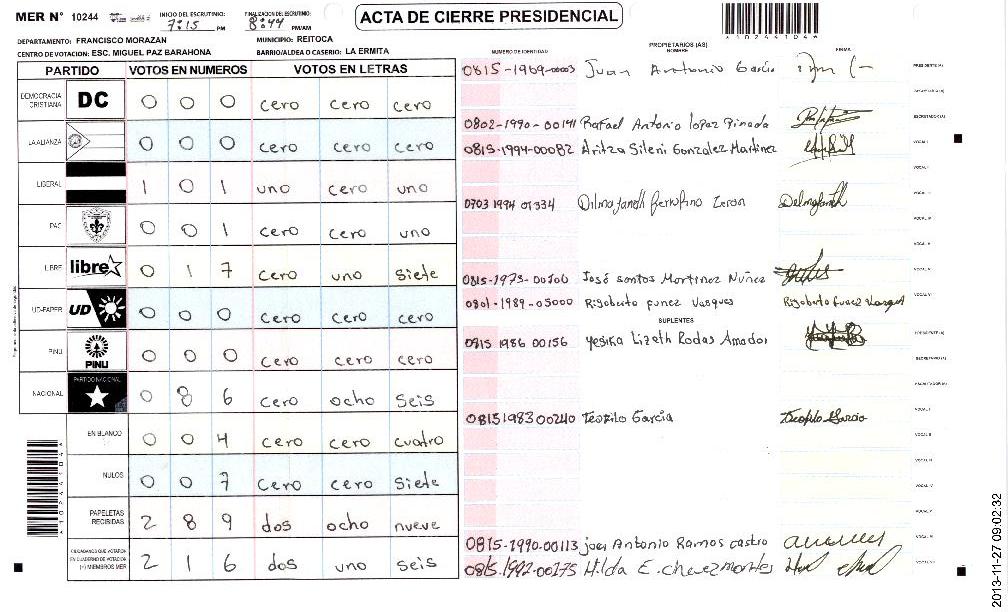 MER N° 10244 INICIO DEL ESCRUTINIO: 7:15 PM FINALIZACION DEL ESCRUTINIO: 8:44 PM/AM
ACTA DE CIERRE PRESIDENCIAL
DEPARTAMENTO: FRANCISCO MORAZAN MUNICIPIO: REITOCA
CENTRO DE VOTACION: ESC. MIGUEL PAZ BARAHONA BARRIO/ALDEA O CASERIO: LA ERMITA
PARTIDO VOTOS EN NUMEROS VOTOS EN LETRAS
DEMOCRACIA CRISTIANA DC 0 0 0 cero cero cero
LA ALIANZA 0 0 0 cero cero cero
LIBERAL 1 0 1 uno cero uno
PAC 0 0 1 cero cero uno
LIBRE libre 0 1 7 cero uno siete
UD-FAPER UD 0 0 0 cero cero cero
PINU PINU 0 0 0 cero cero cero
NACIONAL PARTIDO NACIONAL 0 8 6 cero ocho seis
EN BLANCO 0 0 4 cero cero cuatro
NULOS 0 0 7 cero cero siete
PAPELETAS RECIBIDAS 2 8 9 dos ocho nueve
CIUDADANOS QUE VOTARON EN CUADERNO DE VOTACION (+) MIEMBROS MER 2 1 6 dos uno seis
NUMERO DE IDENTIDAD PROPIETARIOS (AS) NOMBRE FIRMA
0815-1969-00003 Juan Antonio García PRESIDENTE (A)
0802-1990-00141 Rafael Antonio lopez Pineda SECRETARIO (A)
0815-1994-00082 Aritza Sileni Gonzalez Martinez VOCAL I
0703 1994 01334
0815-1973-00106 José santos Martinez Nuñez
0801-1989-05000 Rigoberto funez Vasques Rigoberto funez Vasques
SUPLENTES
0815 1986 00156 yesika Lizeth Rodas Amador PRESIDENTE (A)
0815198300240 Teofilo García Teofilo Garcia VOCAL I
0815-1990-00113 joel Antonio Ramos castro
0815-1992-00175 Hilda E. chevez montes
2013-11-27 09:02:32